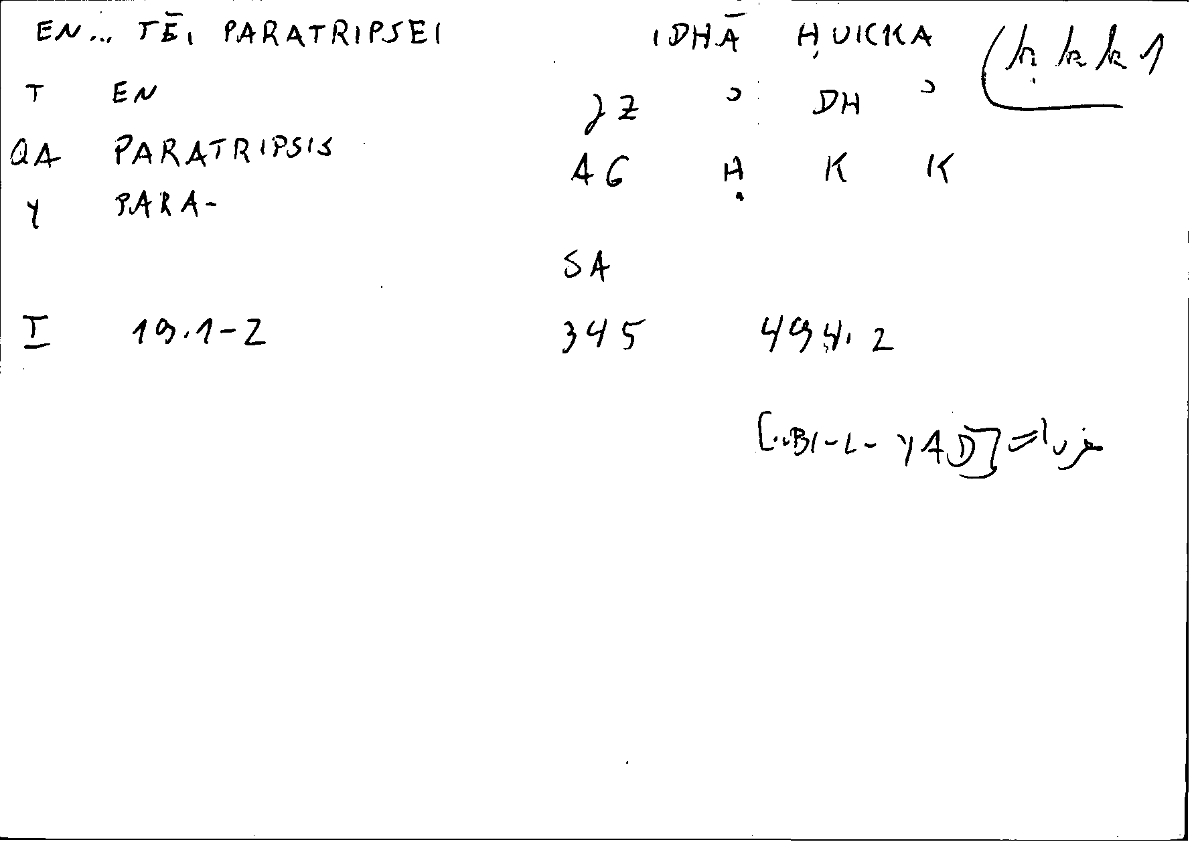 EN... TĒI PARATRIPSEI IDHĀ ḤUICKA (ḥ k k 1
T EN JZ ɔ DH ɔ
QA PARATRIPSIS AG Ḥ K K
Y PARA-
SA
I 19.1-2 345 494.2
[..BI-L-YAD]